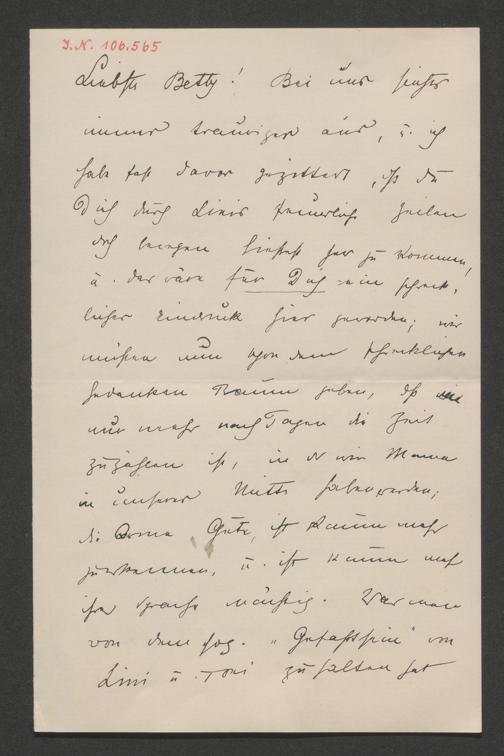 J.N. 106.565
Liebste Betty! Bei uns sieht's
immer trauriger aus, u. ich
habe fast davor gezittert, dß du
Dich durch Linis Zeilen
doch bewegen ließest her zu kommen,
u. das wäre für Dich ein schreck-
licher Eindruck hier geworden; wir
müssen nun schon dem schrecklichen
Gedanken Raum geben, dß
nur mehr nach Tagen die Zeit
zu zählen ist, in der wir Mama
in unserer Mitte haben werden;
die Arme Gute, ist kaum mehr
zu erkennen, u. ist kaum mehr
ihrer Sprache mächtig. Was man
von dem sog. „Gefaßtsein" von
Lini u. Toni zu halten hat